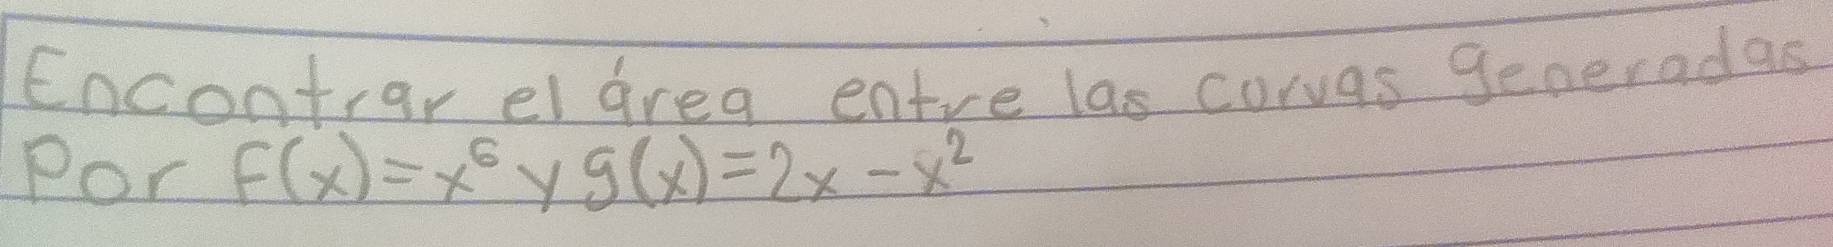 Encontrar el área entre las curvas generadas
Por f(x)=x⁶ y g(x)=2x-x²